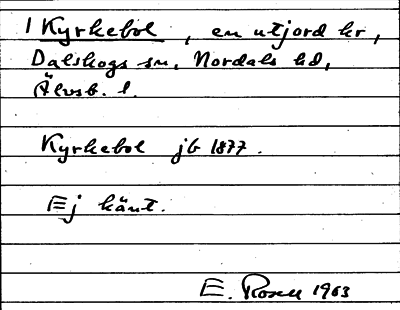 1 Kyrkebol, en utjord kr,
Dalskogs sn, Nordals hd,
Älvsb. l.
Kyrkebol jb 1877.
Ej känt.
E. Rosell 1963